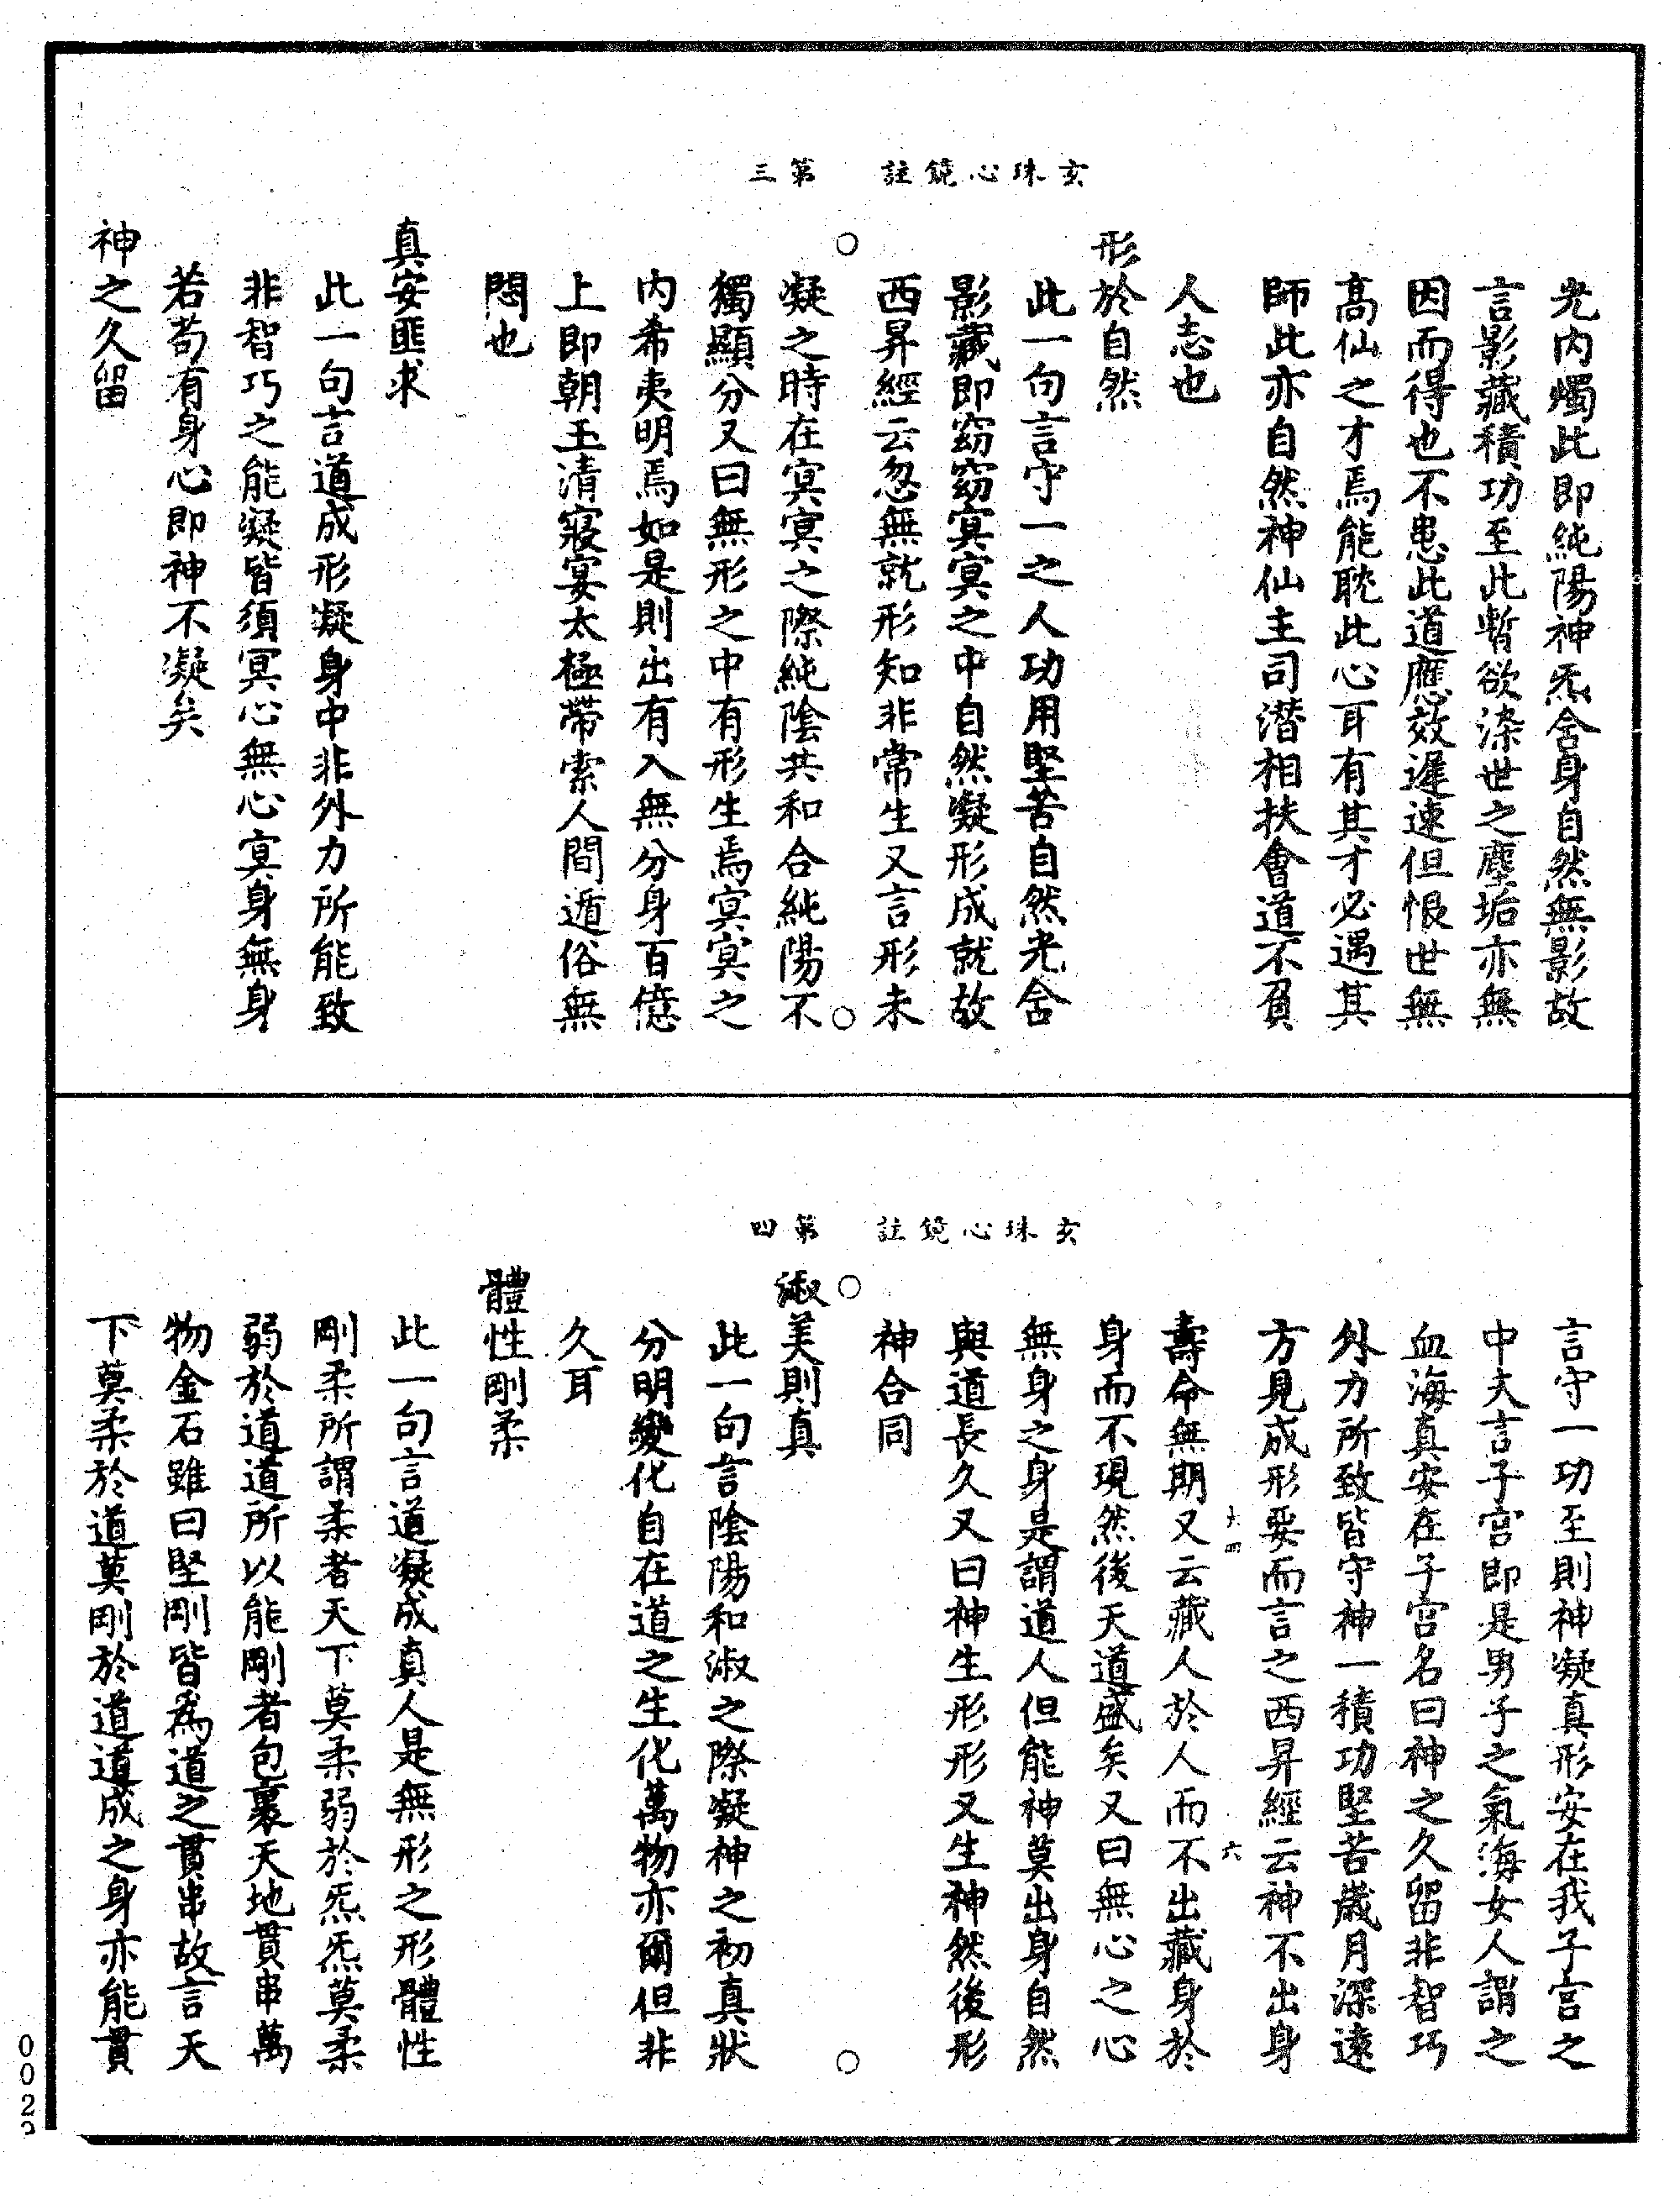 玄珠心鏡註　第三
光内燭此即純陽神炁舍身自然無影故
言影藏積功至此暫欲染世之塵垢亦無
因而得也不患此道應效遲速但恨世無
高仙之才焉能耽此心耳有其才必遇其
師此亦自然神仙主司潜相扶會道不負
人志也
形於自然
此一句言守一之人功用堅苦自然光舍
影藏即窈窈冥冥之中自然凝形成就故
西昇經云忽無就形知非常生又言形未
凝之時在冥冥之際純陰共和合純陽不
獨顯分又曰無形之中有形生焉冥冥之
内希夷明焉如是則出有入無分身百億
上即朝玉清寢宴太極帶索人間遁俗無
悶也
真安匪求
此一句言道成形凝身中非外力所能致
非智巧之能凝皆須冥心無心冥身無身
若苟有身心即神不凝矣
神之久留
玄珠心鏡註　第四
言守一功至則神凝真形安在我子宫之
中夫言子宫即是男子之氣海女人謂之
血海真安在子宫名曰神之久留非智巧
外力所致皆守神一積功堅苦歲月深遠
方見成形要而言之西昇經云神不出身
六
壽命無期又云藏人於人而不出藏身於
身而不現然後天道盛矣又曰無心之心
無身之身是謂道人但能神莫出身自然
與道長久又曰神生形形又生神然後形
神合同
淑美則真
此一句言陰陽和淑之際凝神之初真狀
分明變化自在道之生化萬物亦爾但非
久耳
體性剛柔
此一句言道凝成真人是無形之形體性
剛柔所謂柔者天下莫柔弱於炁炁莫柔
弱於道道所以能剛者包裹天地貫串萬
物金石雖曰堅剛皆為道之貫串故言天
下莫柔於道莫剛於道道成之身亦能貫